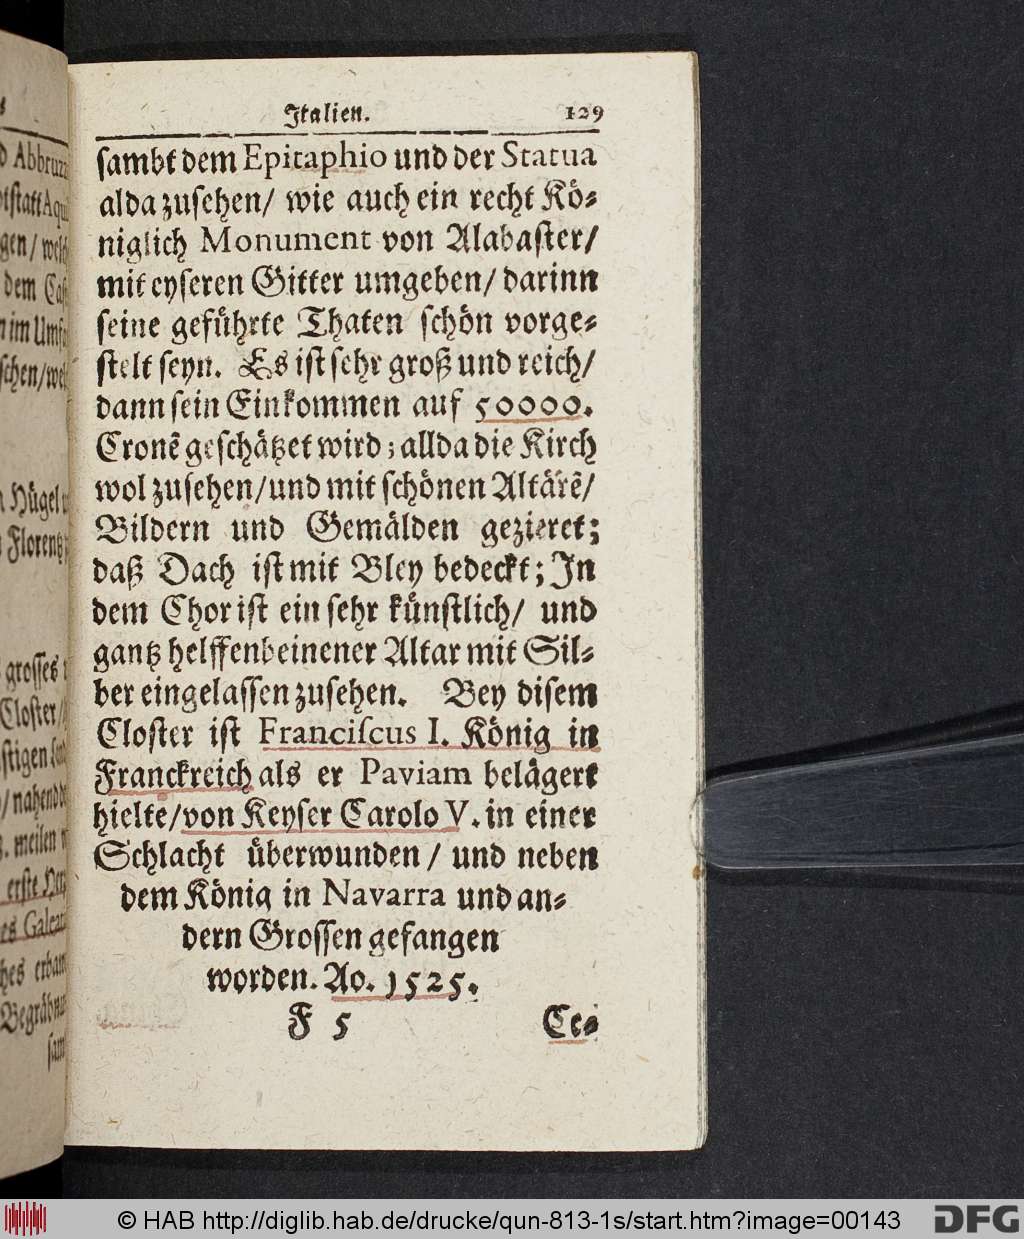 Italien. 129
sambt dem Epitaphio und der Statua
alda zusehen/ wie auch ein recht Kö-
niglich Monument von Alabaster/
mit eyseren Gitter umgeben/ darinn
seine geführte Thaten schön vorge-
stelt seyn. Es ist sehr groß und reich/
dann sein Einkommen auf 50000.
Cronẽ geschätzet wird; allda die Kirch
wol zusehen/und mit schönen Altärẽ/
Bildern und Gemälden gezieret;
daß Dach ist mit Bley bedeckt; In
dem Chor ist ein sehr künstlich/ und
gantz helffenbeinener Altar mit Sil-
ber eingelassen zusehen. Bey disem
Closter ist Franciscus I. König in
Franckreich als er Paviam belägert
hielte/von Keyser Carolo V. in einer
Schlacht überwunden/ und neben
dem König in Navarra und an-
dern Grossen gefangen
worden. Ao. 1525.
F 5 Ce-
d Abbruz
gen/
dem
n im
schen/
Hügel
Florentz
grosses
Closter/
stigen
/ nahend
meilen
erste
es Galea
hes erba
Begräb
sam
© HAB http://diglib.hab.de/drucke/qun-813-1s/start.htm?image=00143
DFG